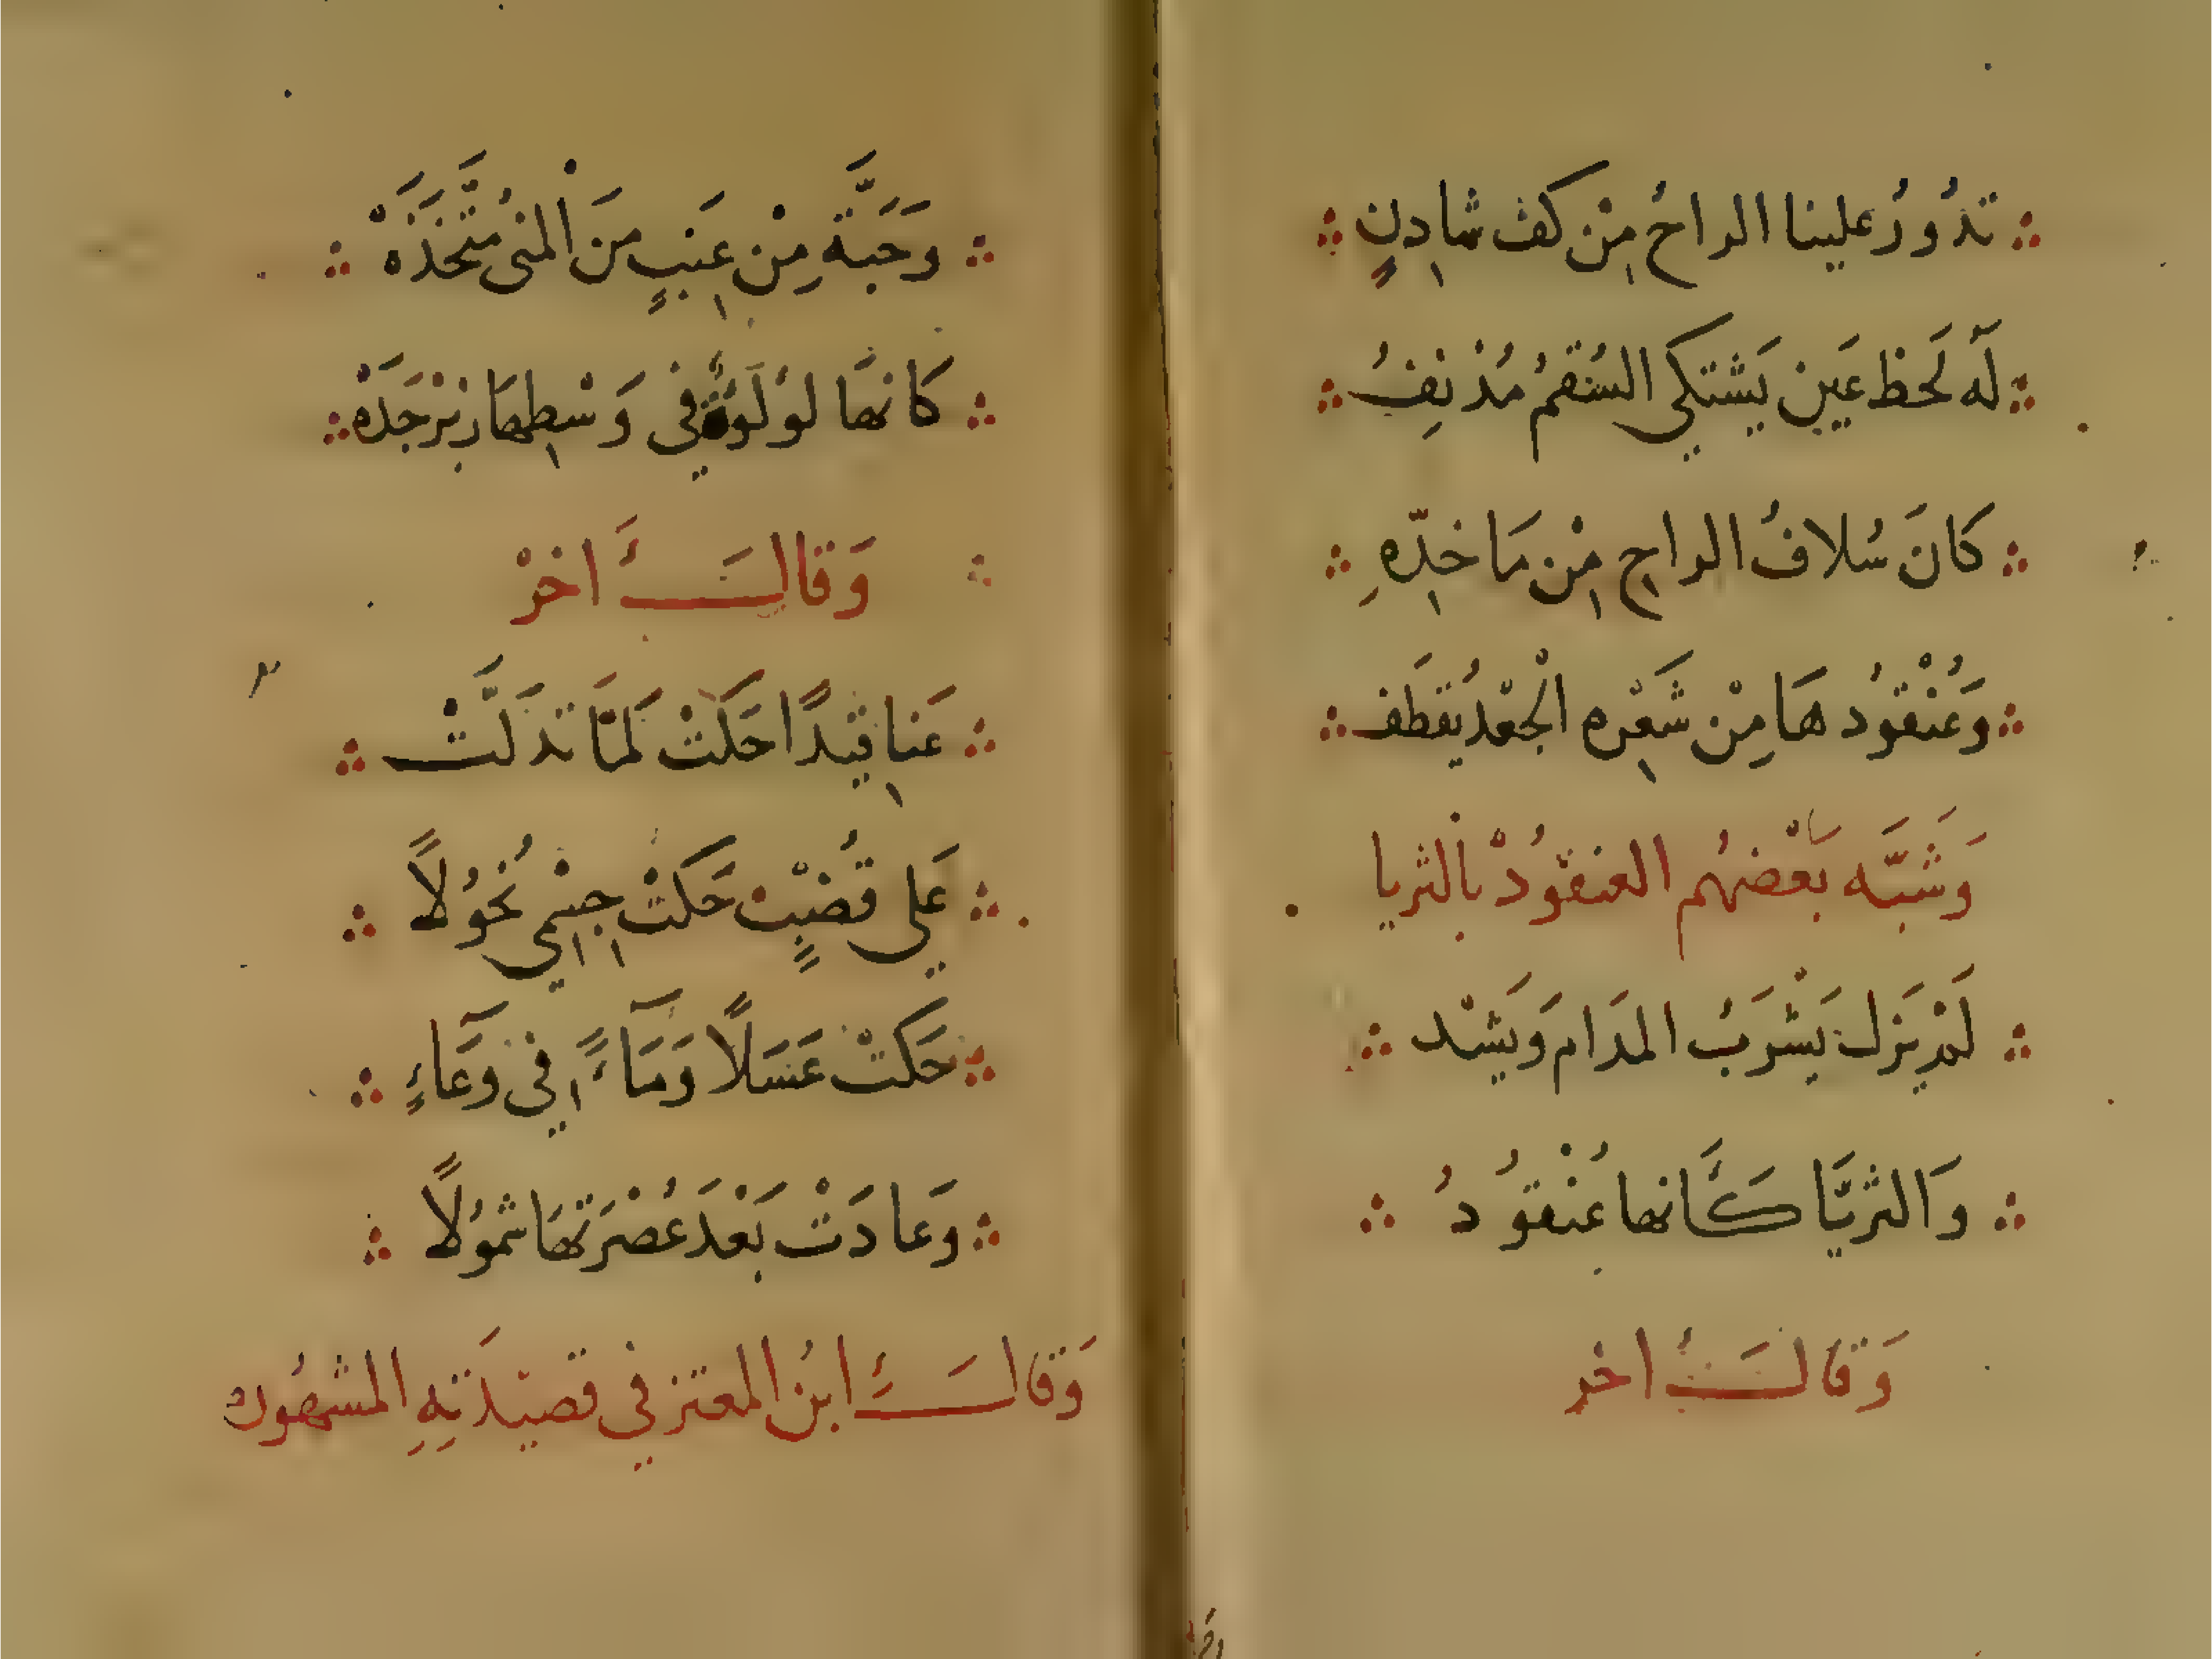 تَدُورُ علينا الراحُ مِنْ كَف شادِنٍ
لَه لَحظ عَين يَشتكي السُقمُ مُدْنِفُ
كَانَ سُلافُ الراحِ مِنْ مَا خدّهِ
وَعُنْقُودُ هَا مِنْ شَعْرِه الْجَعْدِ يُقطَف
وَشَبَّه بَعْضهُم العنقُودْ بالثريا
لَمْ يَزَل يَشْرَبُ المدَام وَيَشْد
وَالثريَّا كَأَنها عُنْقُودُ
وَقَالَ اخر
وَحَبَّة مِنْ عِنَبٍ مَنَ الْمنىُ مُتَّخَذَهْ
كَانهَا لؤلُؤة في وَسْطِهَا زبَرْجَدَهْ
وَقالَ اخرْ
عَناقِيْدًا حَكَتْ لمَّا تدَلَّتْ
عَلى قُضْبٍ حَكَتْ جِسْمي نُحُولاً
حَكَتْ عَسَلًا وَمَآءً في وَعَآءٍ
وَعادَتْ بَعْدَ عُصْرَتهَا شمُولًا
وَقالَ ابنُ المعتز في قصيْدَتِهِ المشهُوره